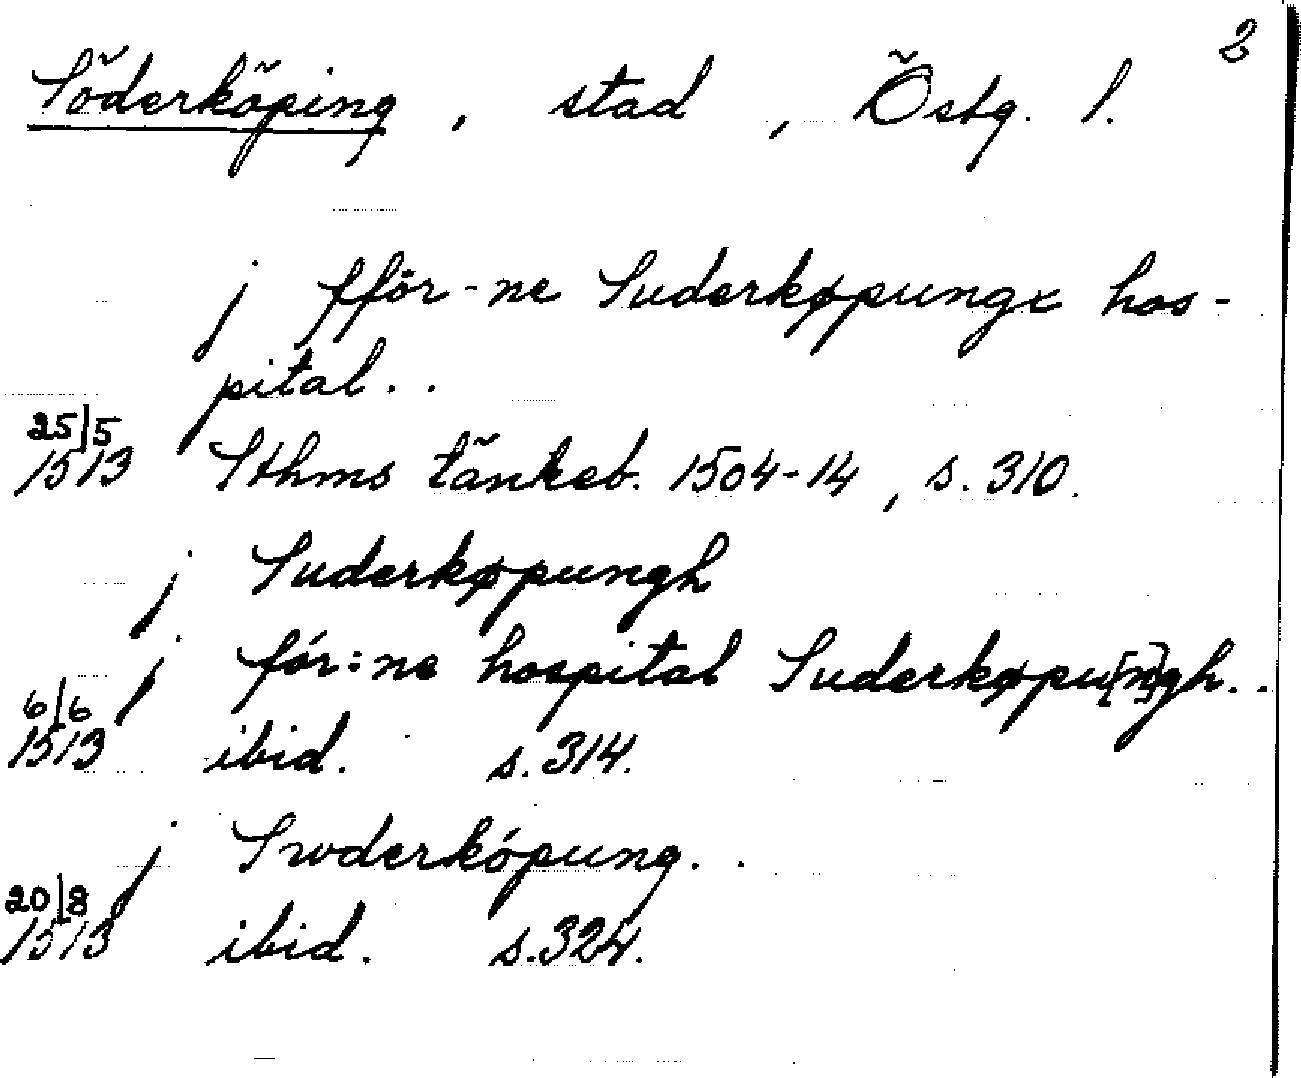 2
Söderköping, stad, Östg. l.
j fför-ne Suderkøpunge hos-
pital..
25/5
1513 Sthms tänkeb. 1504-14, s. 310.
j Suderkøpungh
j fór:ne hospital Suderkøpu[n]gh..
6/6
1513 ibid. s. 314.
j Swderkópung..
20/8
1513 ibid. s. 324.